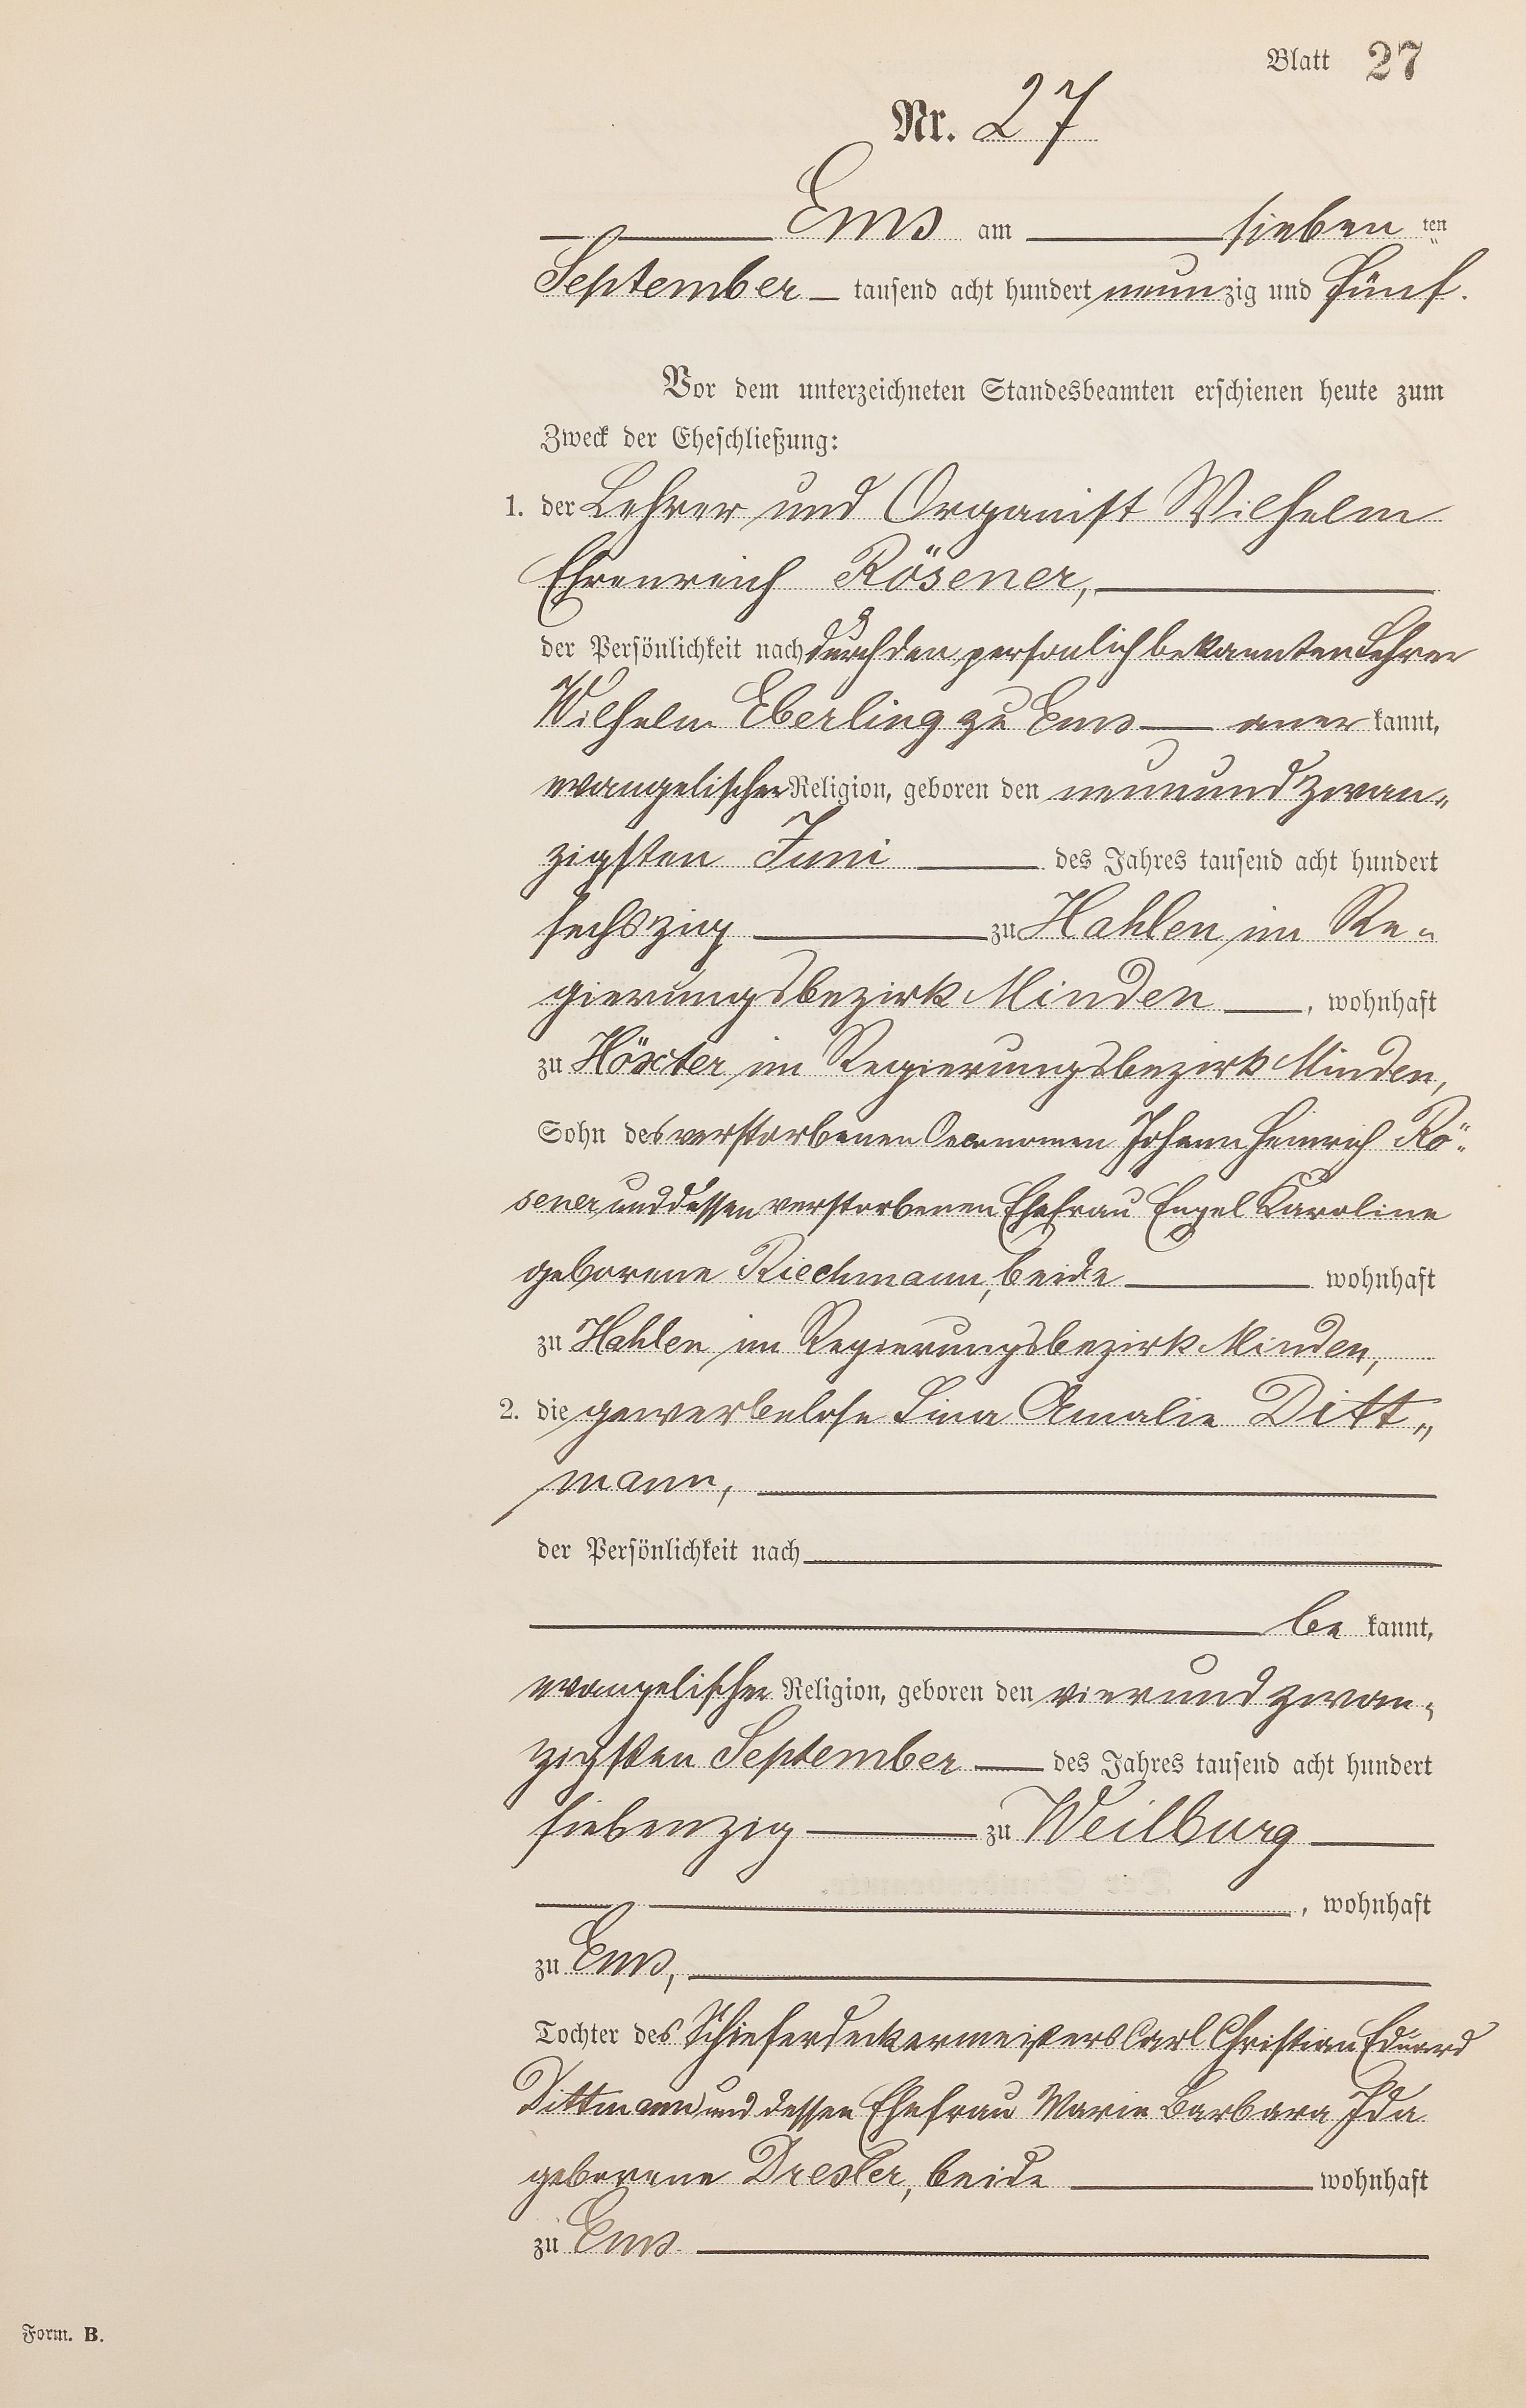 Blatt 27
Nr. 27
Ems am sieben ten
September tausend acht hundert neunzig und fünf.
Vor dem unterzeichneten Standesbeamten erschienen heute zum
Zweck der Eheschließung:
1. der Lehrer und Organist Wilhelm
Ehrenreich Rösener,
der Persönlichkeit nach durch den persönlich bekannten Lehrer
Wilhelm Eberling zu Ems aner kannt,
evangelischer Religion, geboren den neunundzwan-
zigsten Juni des Jahres tausend acht hundert
sechszig zu Hahlen im Re-
gierungsbezirk Minden, wohnhaft
zu Höxter im Regierungsbezirk Minden,
Sohn des verstorbenen Oeconomen Johann Heinrich Rö-
sener und dessen verstorbenen Ehefrau Engel Karoline
geborene Riechmann, beide wohnhaft
zu Hahlen im Regierungsbezirk Minden,
2. die gewerbelose Lina Amalie Ditt-
mann,
der Persönlichkeit nach
be kannt,
evangelischer Religion, geboren den vierundzwan-
zigsten September des Jahres tausend acht hundert
siebenzig zu Weilburg
, wohnhaft
zu Ems,
Tochter des Schieferdeckermeisters Carl Christian Eduard
Dittmann und dessen Ehefrau Marie Barbara Ida
geborene Dresler, beide wohnhaft
zu Ems.
Form. B.